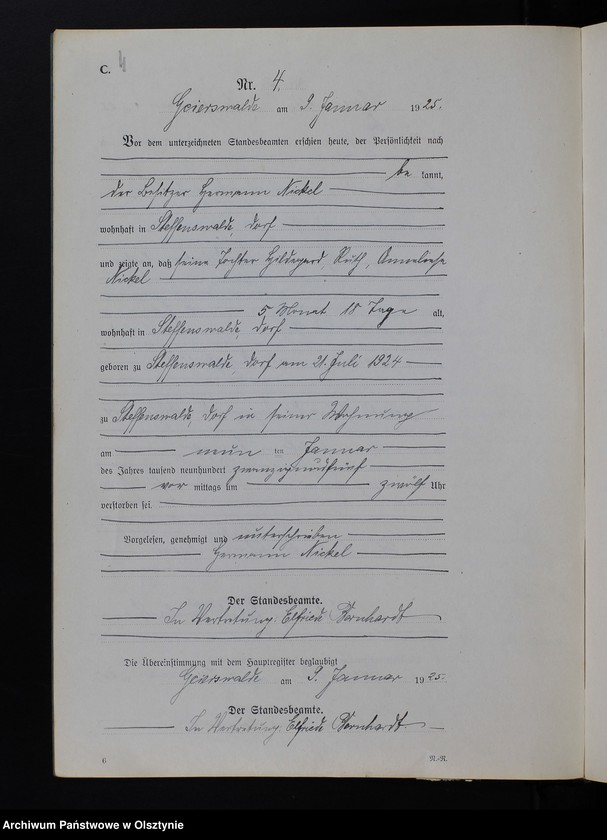 C. 4
Nr. 4.
Geierswalde am 9. Januar 1925.
Vor dem unterzeichneten Standesbeamten erschien heute, der Persönlichkeit nach
be kannt,
der Besitzer Hermann Nickel
wohnhaft in Steffenswalde, Dorf
und zeigte an, daß seine Tochter Hildegard Ruth, Anneliese
Nickel
5 Monat 18 Tage alt,
wohnhaft in Steffenswalde, Dorf
geboren zu Steffenswalde, Dorf am 21. Juli 1924
zu Steffenswalde, Dorf in seiner Wohnung
am neun ten Januar
des Jahres tausend neunhundert zwanzigundfünf
vor mittags um zwölf Uhr
verstorben sei.
Vorgelesen, genehmigt und unterschrieben
Hermann Nickel
Der Standesbeamte.
In Vertretung. Elfriede Bernhardt
Die Übereinstimmung mit dem Hauptregister beglaubigt
Geierswalde am 9. Januar 1925.
Der Standesbeamte.
In Vertretung. Elfriede Bernhardt
6 N.-R.
Archiwum Państwowe w Olsztynie